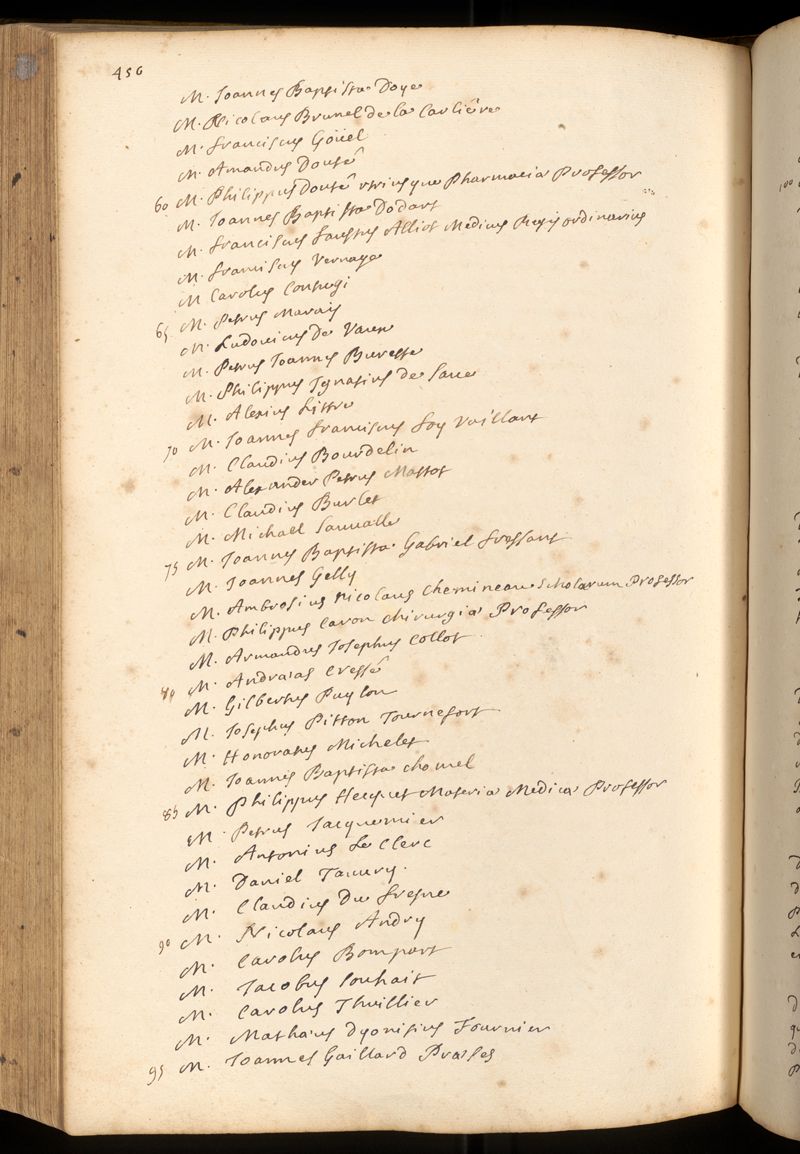 456
M. Joannes Baptista Doye
M. Nicolaus Brunel de la Carliére
M. Franciscus Goüel
M. Amandus Douté
60 M. Philippus Douté utriusque Pharmaciæ Professor
M. Joannes Baptista Dodart
M. Franciscus Faustus Alliot Medicus Regis ordinarius
M. Franciscus Vernage
M Carolus Contugi
65 M. Petrus Marais
M. Ludovicus De Vaux
M. Petrus Joannes Burette
M. Philippus Ignatius de Saux
M. Alexius Littre
70 M. Joannes Franciscus Foy Vaillant
M. Claudius Bourdelin
M. Alexander Petrus Mattot
M. Claudius Burlet
M. Michael Sauvalle
75 M. Joannes Baptista Gabriel Fressant
M. Joannes Gelly
M. Ambrosius Nicolaus Chemineau Scholarum Professor
M. Philippus Caron Chirurgiæ Professor
M. Armandus Josephus Collot
80 M. Andræas Cressé
M. Gilbertus Puylon
M. Josephus Pitton Tournefort
M. Honoratus Michelet
M. Joannes Baptista Chomel
85 M. Philippus Hecquet Materiæ Medicæ Professor
M. Petrus Jacquemier
M. Antonius Le Clerc
M. Daniel Tauvry.
M. Claudius Du Fresne
90 M. Nicolaus Andry
M. Carolus Bompart
M. Jacobus Souhait
M. Carolus Thuillier
M. Mathæus Dyonisius Fournier
95 M. Joannes Gaillard Præses